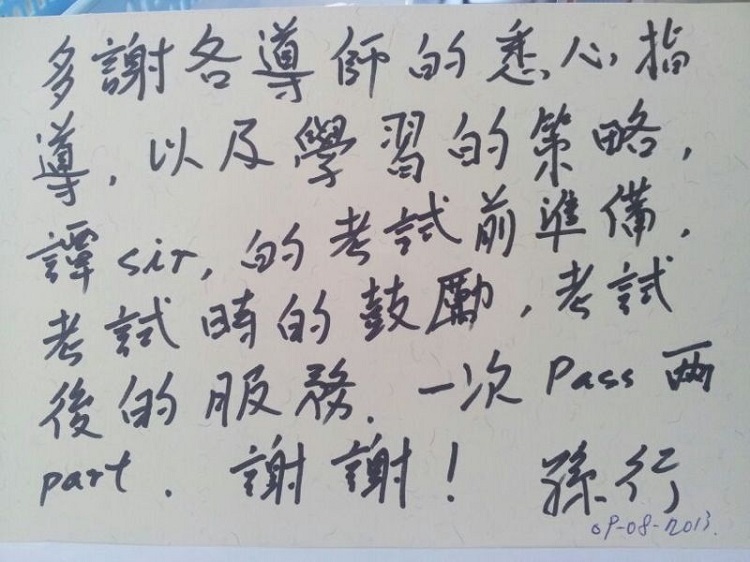 多謝各導師的悉心指
導,以及學習的策略,
譚sir,的考試前準備,
考試時的鼓勵,考試
後的服務.一次Pass両
part. 謝謝! 孫行
09-08-2013.